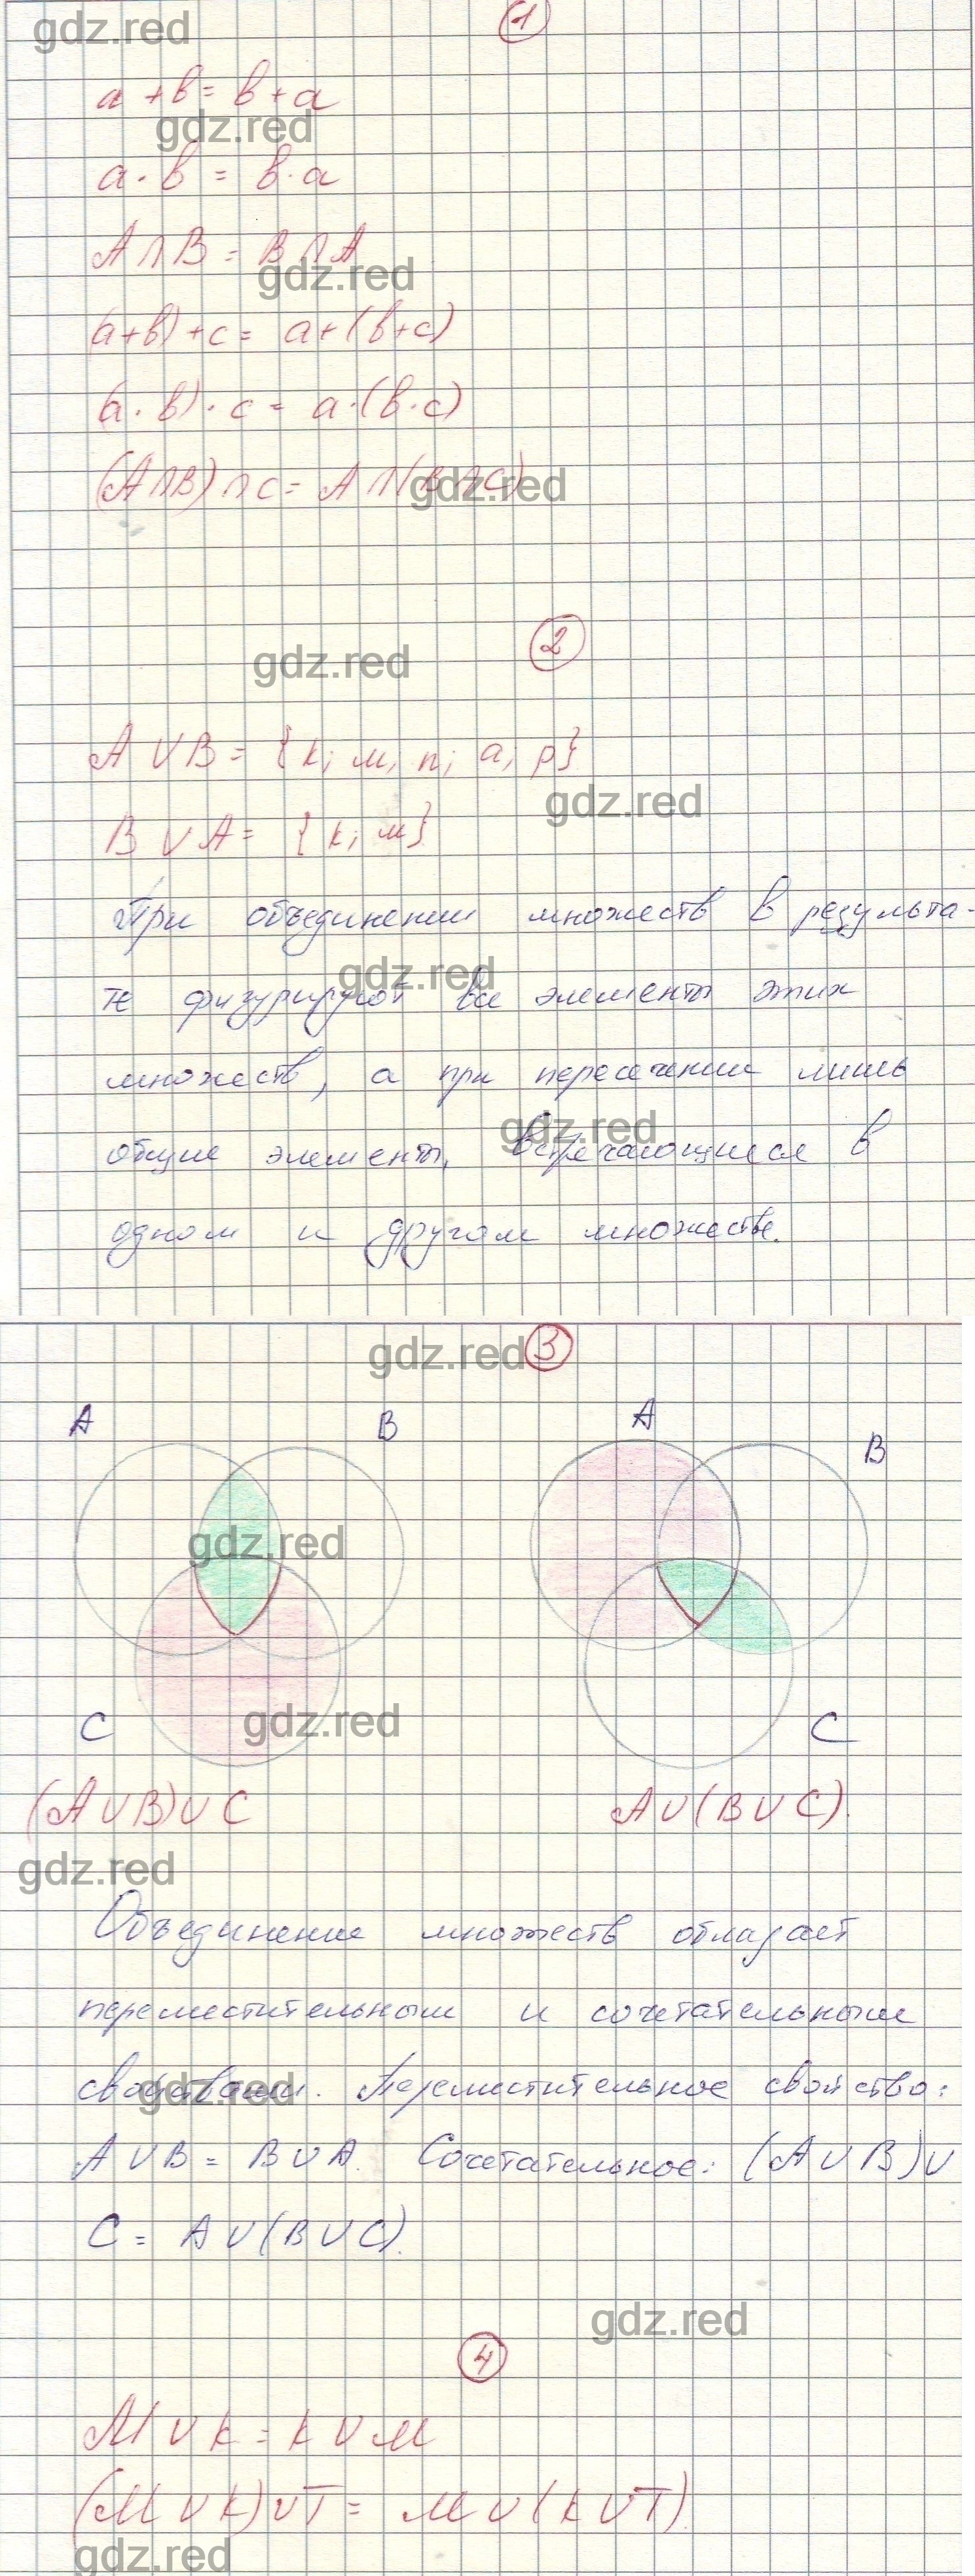 gdz.red
1
a + b = b + a
gdz.red
a · b = b · a
A ∩ B = B ∩ A
gdz.red
(a+b)+c = a+(b+c)
(a · b) · c = a · (b · c)
(A∩B)∩C = A∩(B∩C)
gdz.red
2
gdz.red
A ∪ B = {к; м; п; а; р}
gdz.red
B ∪ A = {к; м}
При объединении множеств в результа-
те фигурируют все элементы этих
gdz.red
множеств, а при пересечении лишь
общие элементы, встречающиеся в
gdz.red
одном и другом множестве.
gdz.red
3
A B A B
gdz.red
C gdz.red C
(A∪B)∪C A∪(B∪C).
gdz.red
Объединение множеств обладает
переместительным и сочетательным
свойствами. Переместительное свойство:
gdz.red
A ∪ B = B ∪ A. Сочетательное: (A ∪ B) ∪
C = A ∪ (B ∪ C).
gdz.red
4
M ∪ K = K ∪ M
(M ∪ K) ∪ T = M ∪ (K ∪ T).
gdz.red